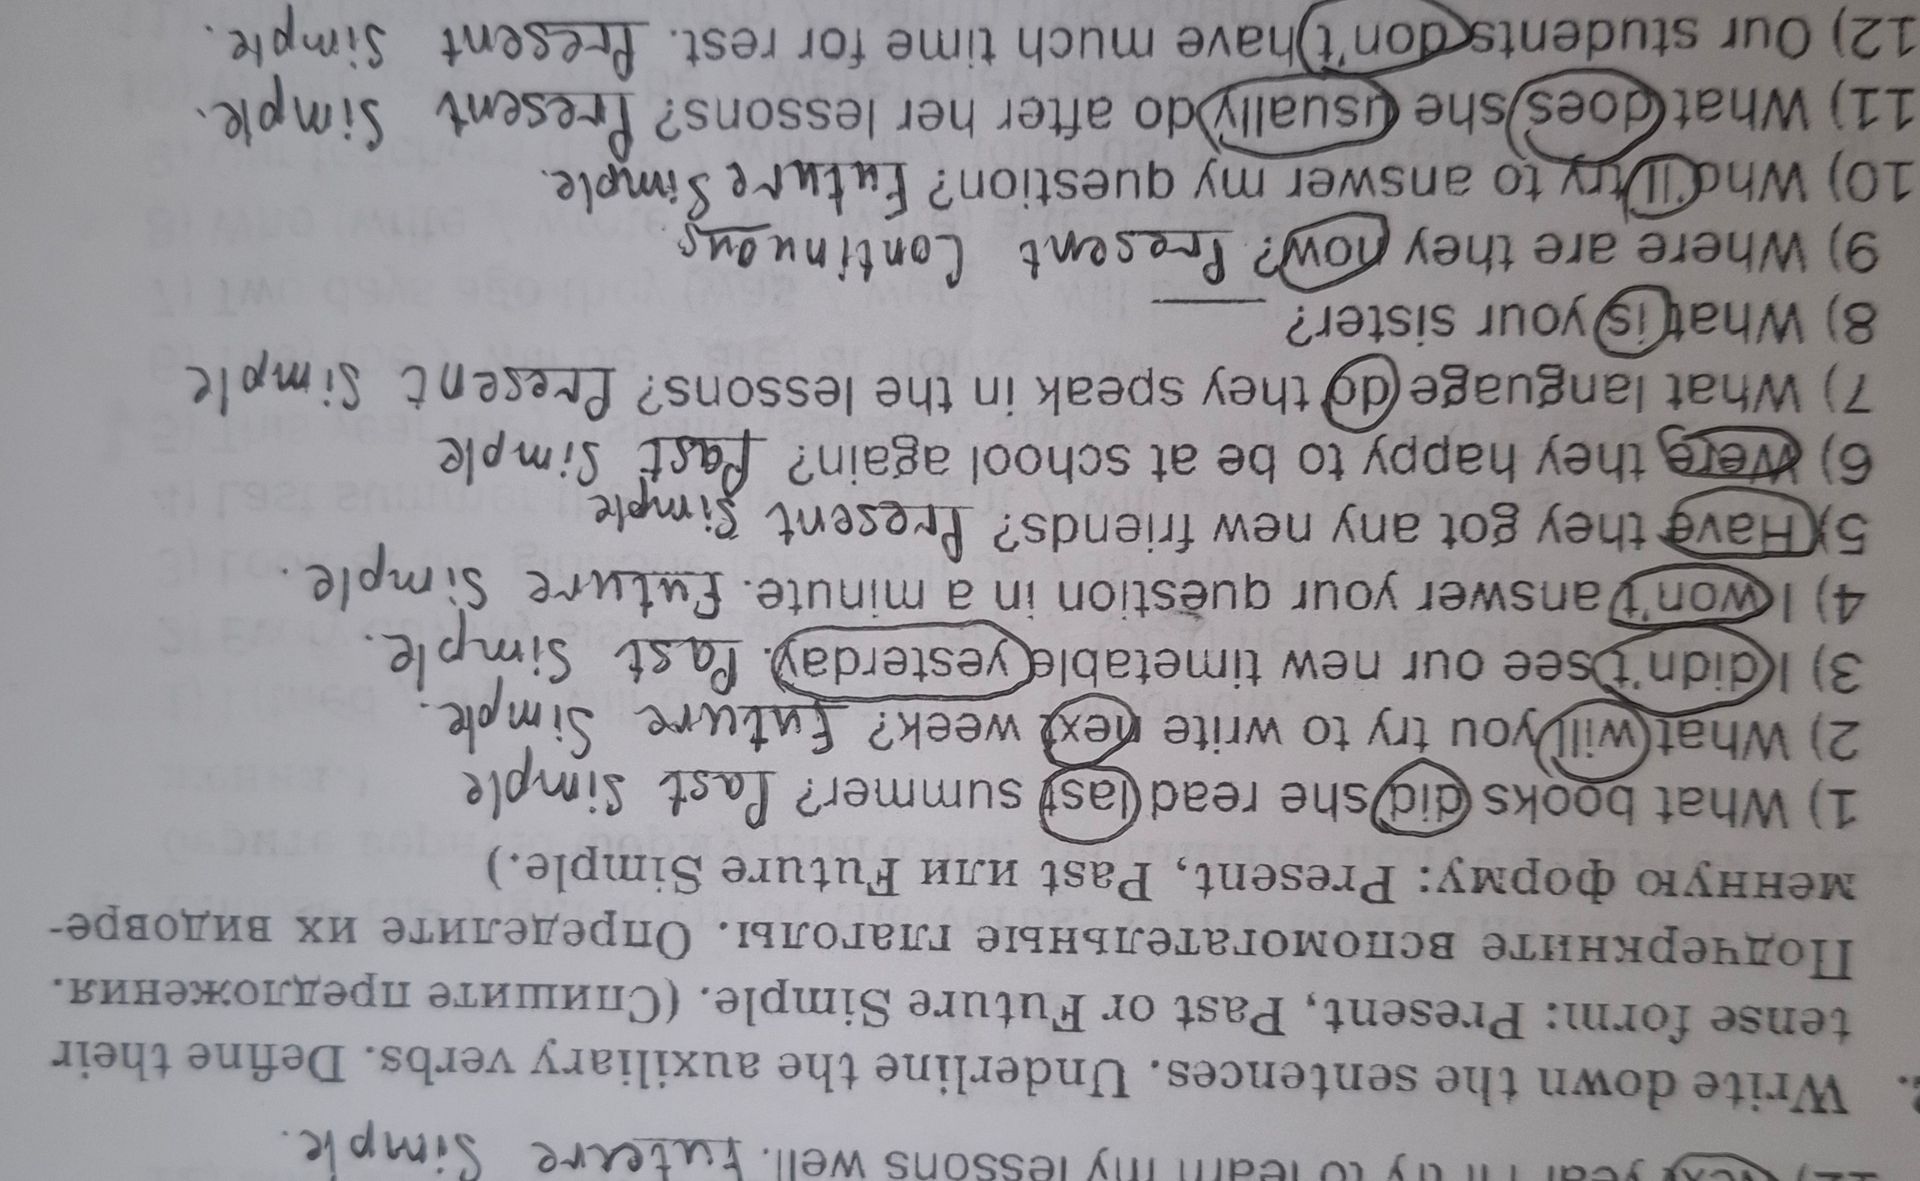 12) Next year I'll try to learn my lessons well. Future Simple.
2. Write down the sentences. Underline the auxiliary verbs. Define their
tense form: Present, Past or Future Simple. (Спишите предложения.
Подчеркните вспомогательные глаголы. Определите их видовре-
менную форму: Present, Past или Future Simple.)
1) What books did she read last summer? Past Simple
2) What will you try to write next week? Future Simple.
3) I didn't see our new timetable yesterday. Past Simple.
4) I won't answer your question in a minute. Future Simple.
5) Have they got any new friends? Present Simple
6) Were they happy to be at school again? Past Simple
7) What language do they speak in the lessons? Present Simple
8) What is your sister?
9) Where are they now? Present Continuous.
10) Who'll try to answer my question? Future Simple.
11) What does she usually do after her lessons? Present Simple.
12) Our students don't have much time for rest. Present Simple.